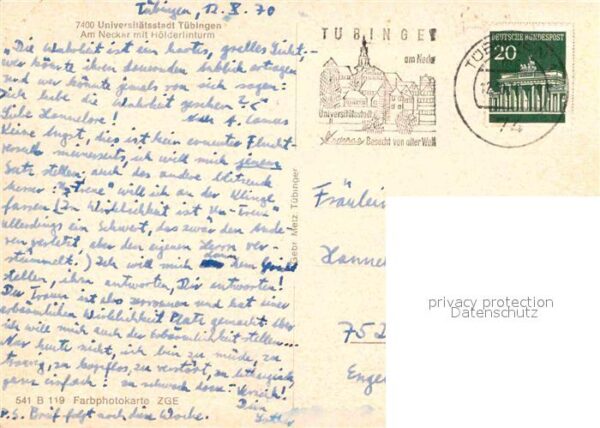 Tübingen, 12. X. 70
7400 Universitätsstadt Tübingen
Am Neckar mit Hölderlinturm
"Die Wahrheit ist ein hartes, grelles Licht,
wer könnte ihren dauernden Anblick ertragen
und wer könnte jemals von sich sagen:
Ich habe die Wahrheit gesehen
A. Camus
Liebe Hannelore!
Keine Angst, dies ist kein erneuter Flucht-
versuch meinerseits, ich will mich jenem
Satz stellen, auch das andere
"Treue" will ich an der Klinge
fassen. (In Wirklichkeit ist "Un-Treue"
allerdings ein Schwert, das zwar den Ande-
ren verletzt, aber den eigenen Herrn ver-
stümmelt.) Ich will mich dann dem
stellen, ihm antworten, Dir antworten!
Der Traum ist also zerronnen und hat einer
erbärmlichen Wirklichkeit Platz gemacht. Aber
ich will mich auch der Erbärmlichkeit stellen...
Nur heute nicht, ich bin zu müde, zu
traurig, zu kopflos, zu verstört, zu lethargisch,
ganz einfach: zu schwach dazu. Verzeih!
Dein
541 B 119 Farbphotokarte ZGE
P.S. Brief folgt noch diese Woche.
Gebr. Metz Tübingen
TÜBINGEN
am Neckar
Universitätsstadt
Besucht von aller Welt
DEUTSCHE BUNDESPOST
20
TÜB
74
Fräulein
Hannel
752
Enge
privacy protection
Datenschutz